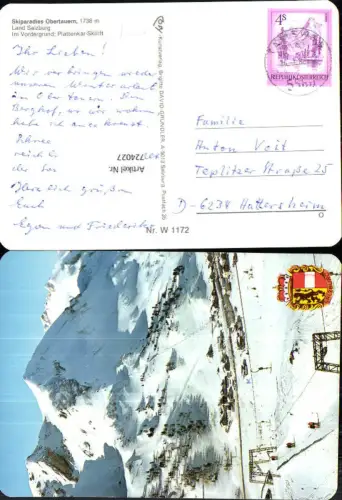 Skiparadies Obertauern, 1738 m
Land Salzburg
Im Vordergrund: Plattenkar-Skilift
Ihr Lieben!
Wir verbringen wieder
unseren Winterurlaub
in Obertauern. Den
Berghof, wo wir wohnen
habe ich angekreuzt.
Schnee
reichl
der So
Herzlich grüßen
Euch
Egon und Friederike
Artikel Nr.
724027
Kunstverlag Brigitte DAVID-GRÜNDLER, A 5027 Salzburg, Postfach 25
4 S
REPUBLIK ÖSTERREICH
Familie
Anton Veit
Teplitzer Straße 25
D-6234 Hattersheim
Nr. W 1172